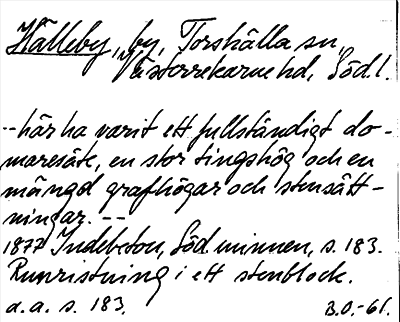 Hälleby, by, Torshälla sn,
Västerrekarne hd, Södl.
--här ha varit ett fullständigt do-
maresäte, en stor tingshög och en
mängd grafhögar och stensätt-
ningar. --
1877 Indebetou, Söd. minnen, s. 183.
Runristning i ett stenblock.
a.a. s. 183.
B.O.-61.